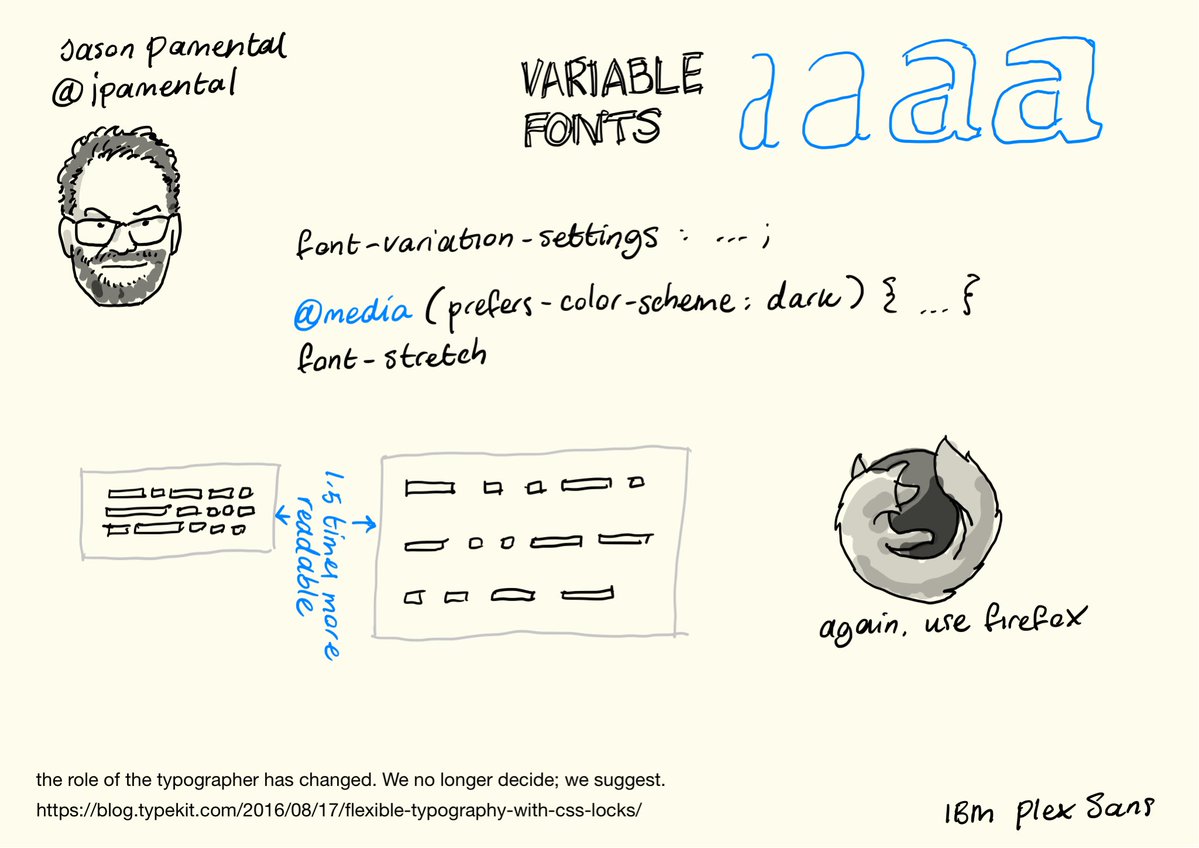 Jason Pamental
@jpamental
VARIABLE
FONTS
a a a a
font-variation-settings : ... ;
@media (prefers-color-scheme: dark) { ... }
font-stretch
1.5 times more
readable
again, use firefox
the role of the typographer has changed. We no longer decide; we suggest.
https://blog.typekit.com/2016/08/17/flexible-typography-with-css-locks/
IBM Plex Sans